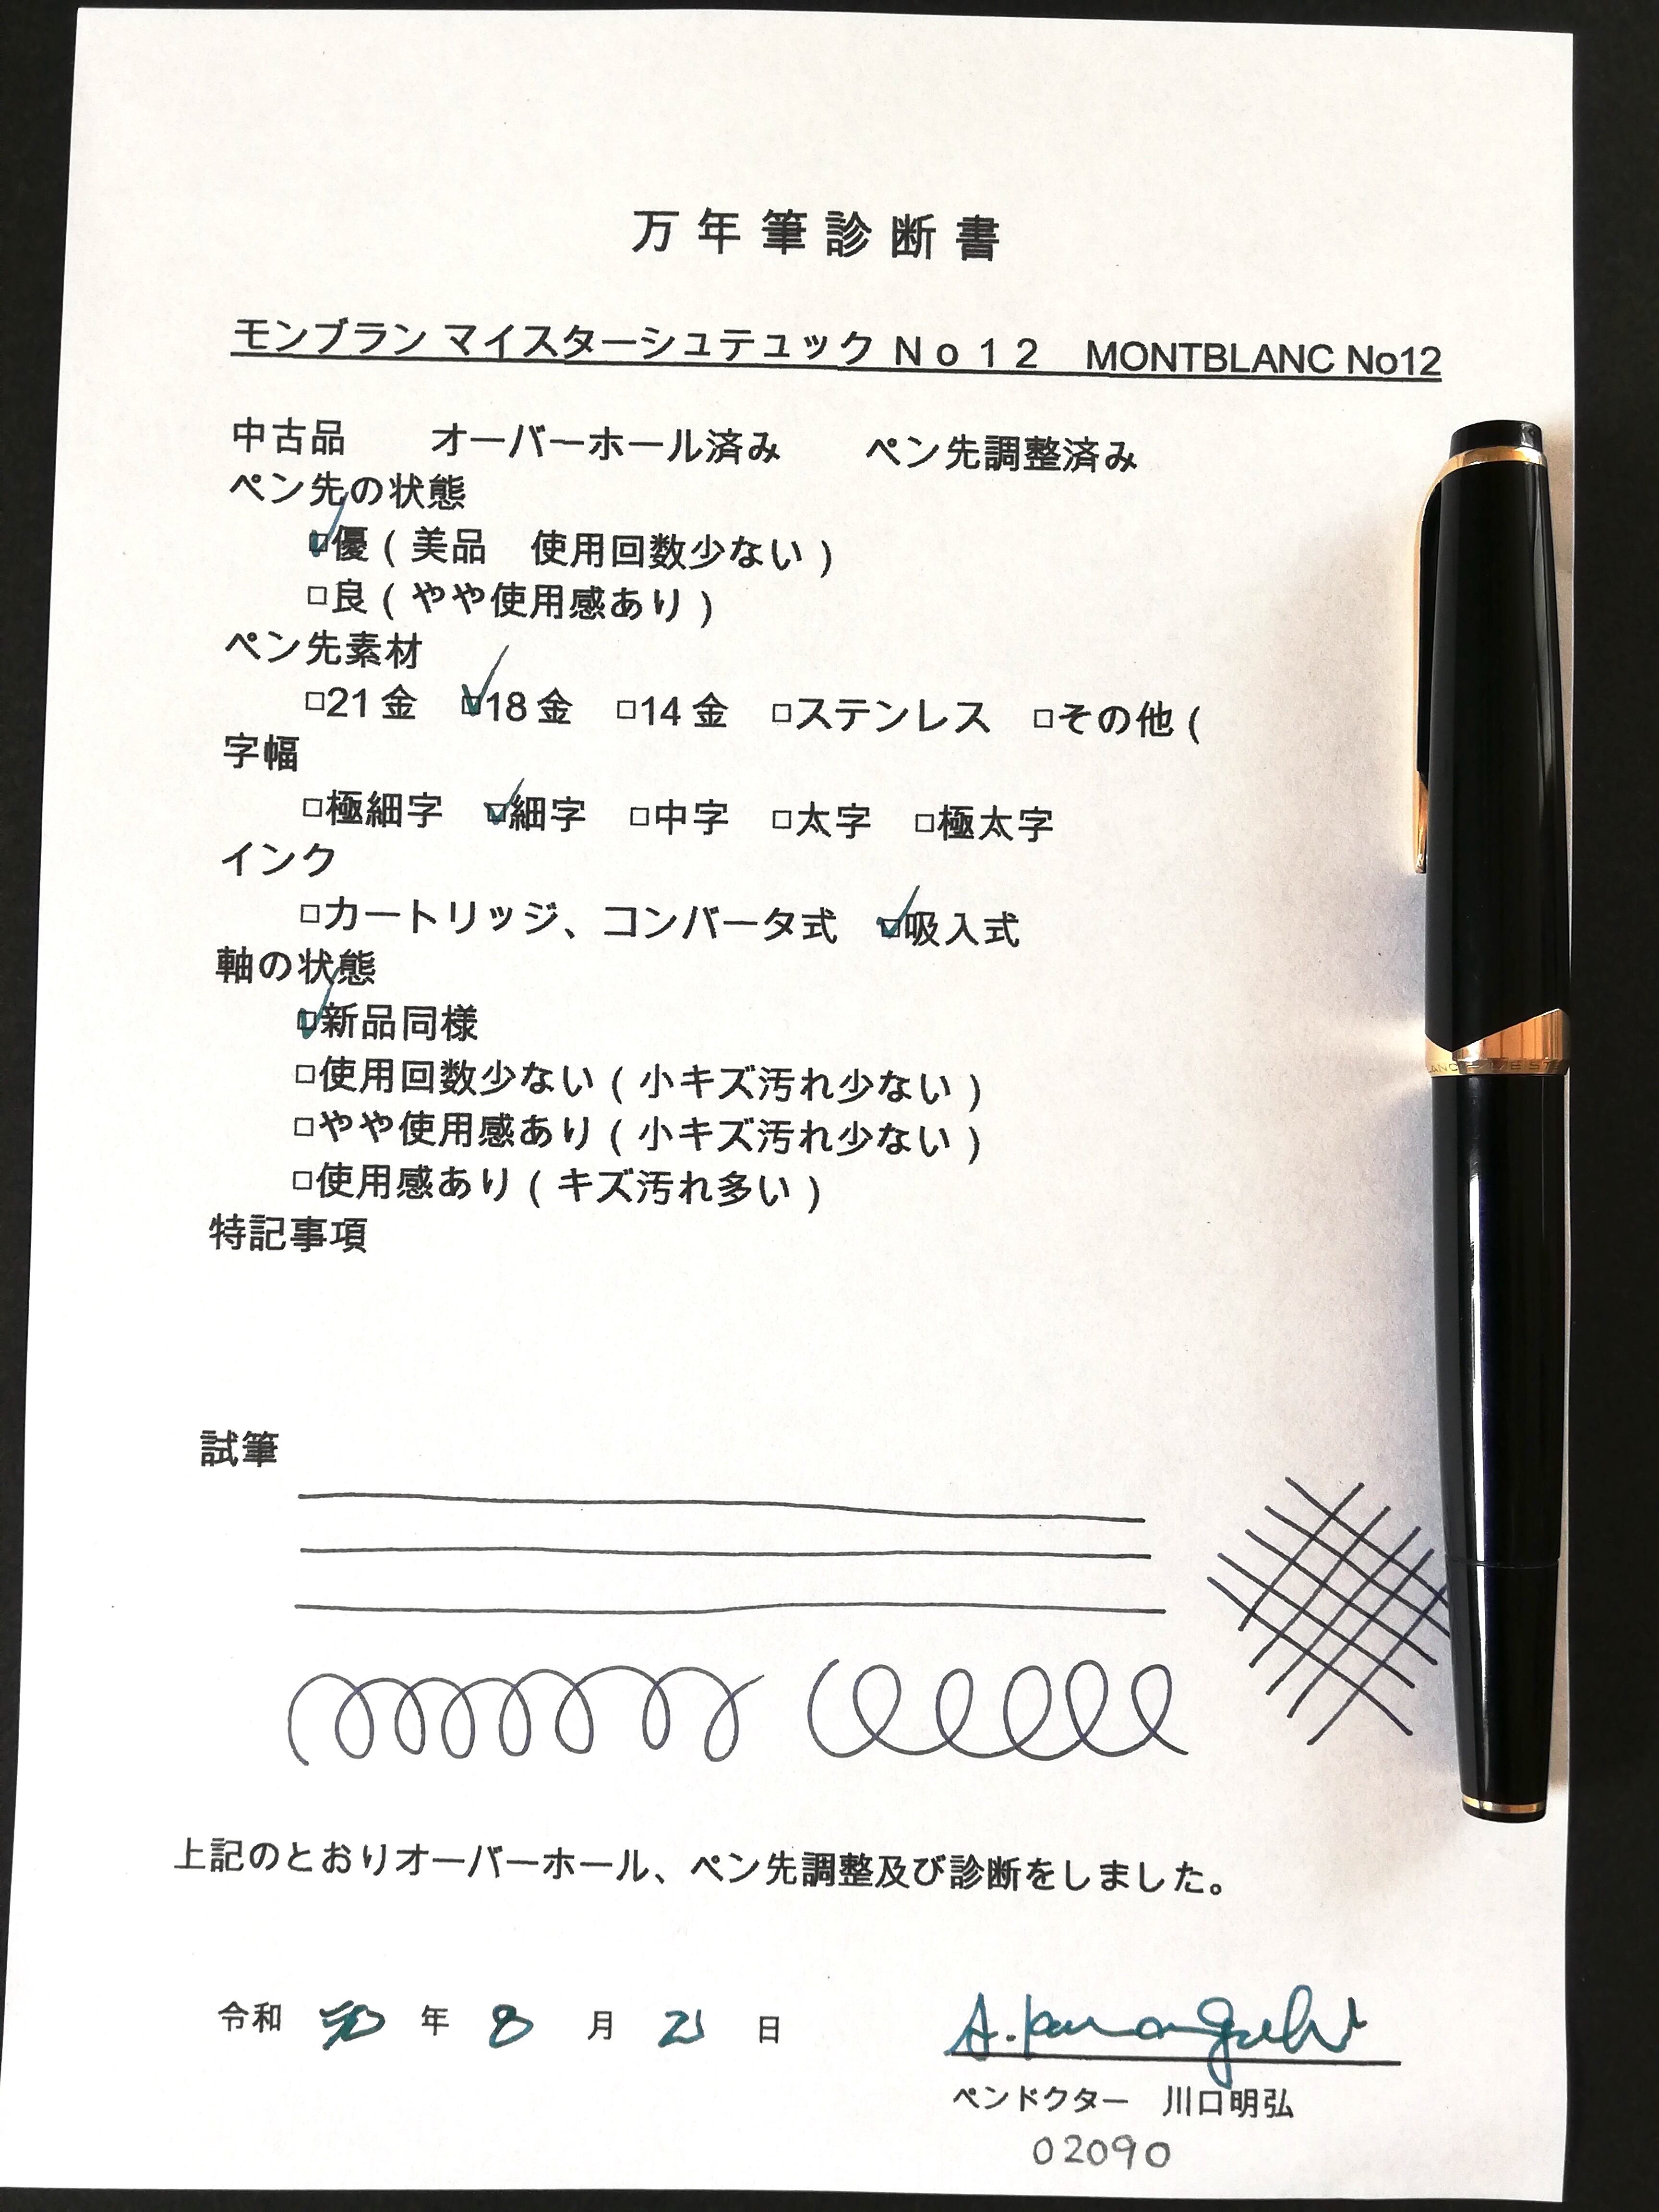 万年筆診断書
モンブラン マイスターシュテュック No12 MONTBLANC No12
中古品 オーバーホール済み ペン先調整済み
ペン先の状態
☑優(美品 使用回数少ない)
□良(やや使用感あり)
ペン先素材
□21金 ☑18金 □14金 □ステンレス □その他(
字幅
□極細字 ☑細字 □中字 □太字 □極太字
インク
□カートリッジ、コンバータ式 ☑吸入式
軸の状態
☑新品同様
□使用回数少ない(小キズ汚れ少ない)
□やや使用感あり(小キズ汚れ少ない)
□使用感あり(キズ汚れ多い)
特記事項
試筆
上記のとおりオーバーホール、ペン先調整及び診断をしました。
令和 元 年 8 月 21 日
A. Kawaguchi
ペンドクター 川口明弘
02090